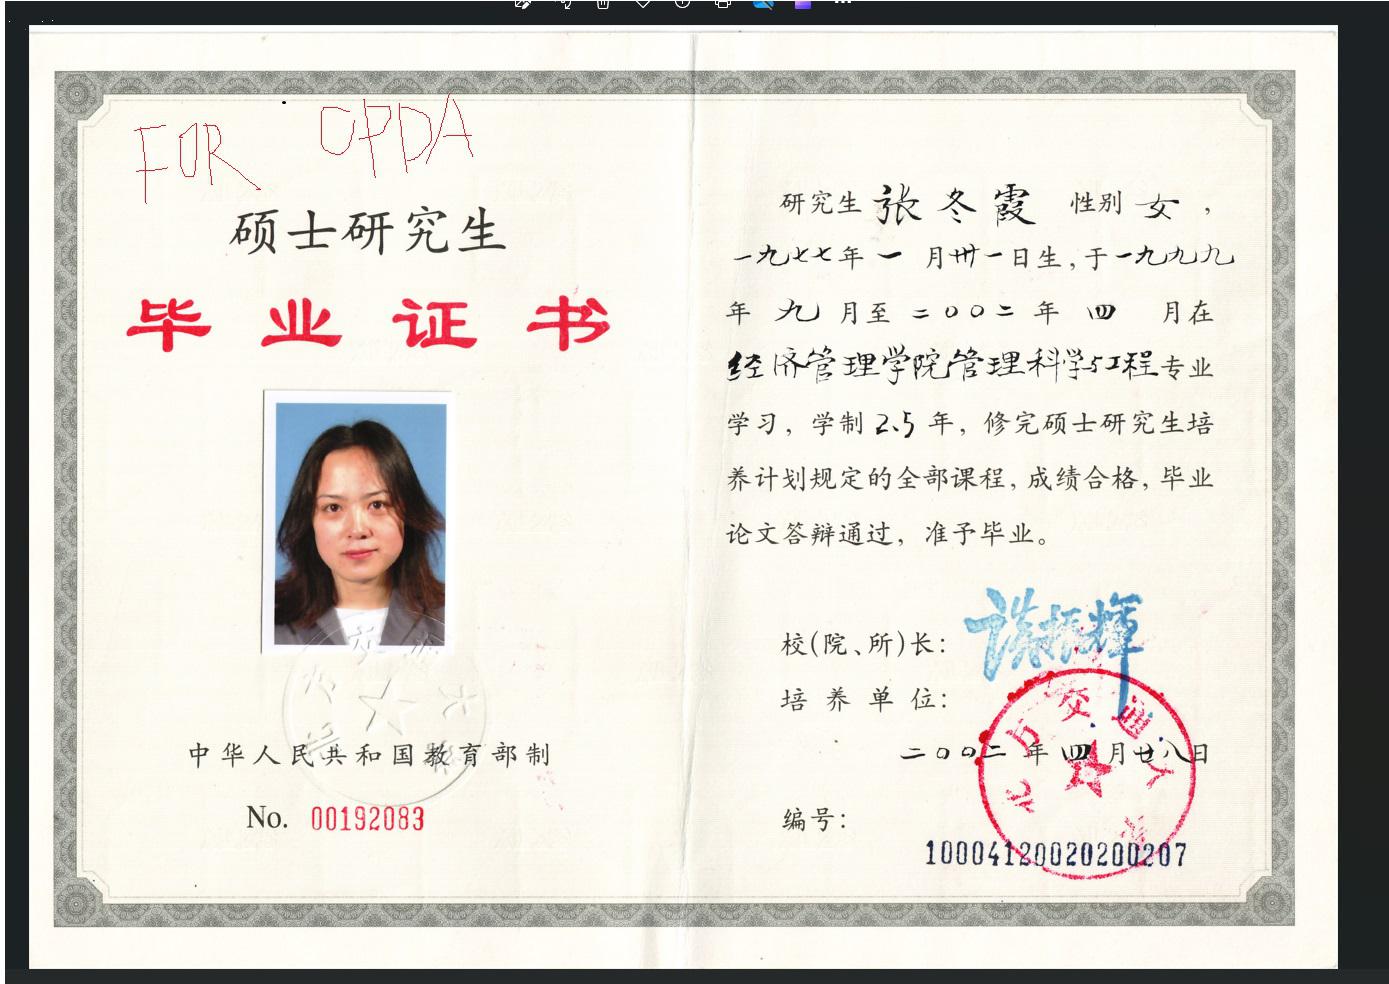 FOR CPDA
硕士研究生
毕业证书
中华人民共和国教育部制
No. 00192083
研究生 张冬霞 性别 女，
一九七七年一月卅一日生，于一九九九
年九月至二〇〇二年四月在
经济管理学院管理科学与工程专业
学习，学制2.5年，修完硕士研究生培
养计划规定的全部课程，成绩合格，毕业
论文答辩通过，准予毕业。
校(院、所)长：
培养单位：
北方交通大学
二〇〇二年四月廿八日
编号：
100041200202000207